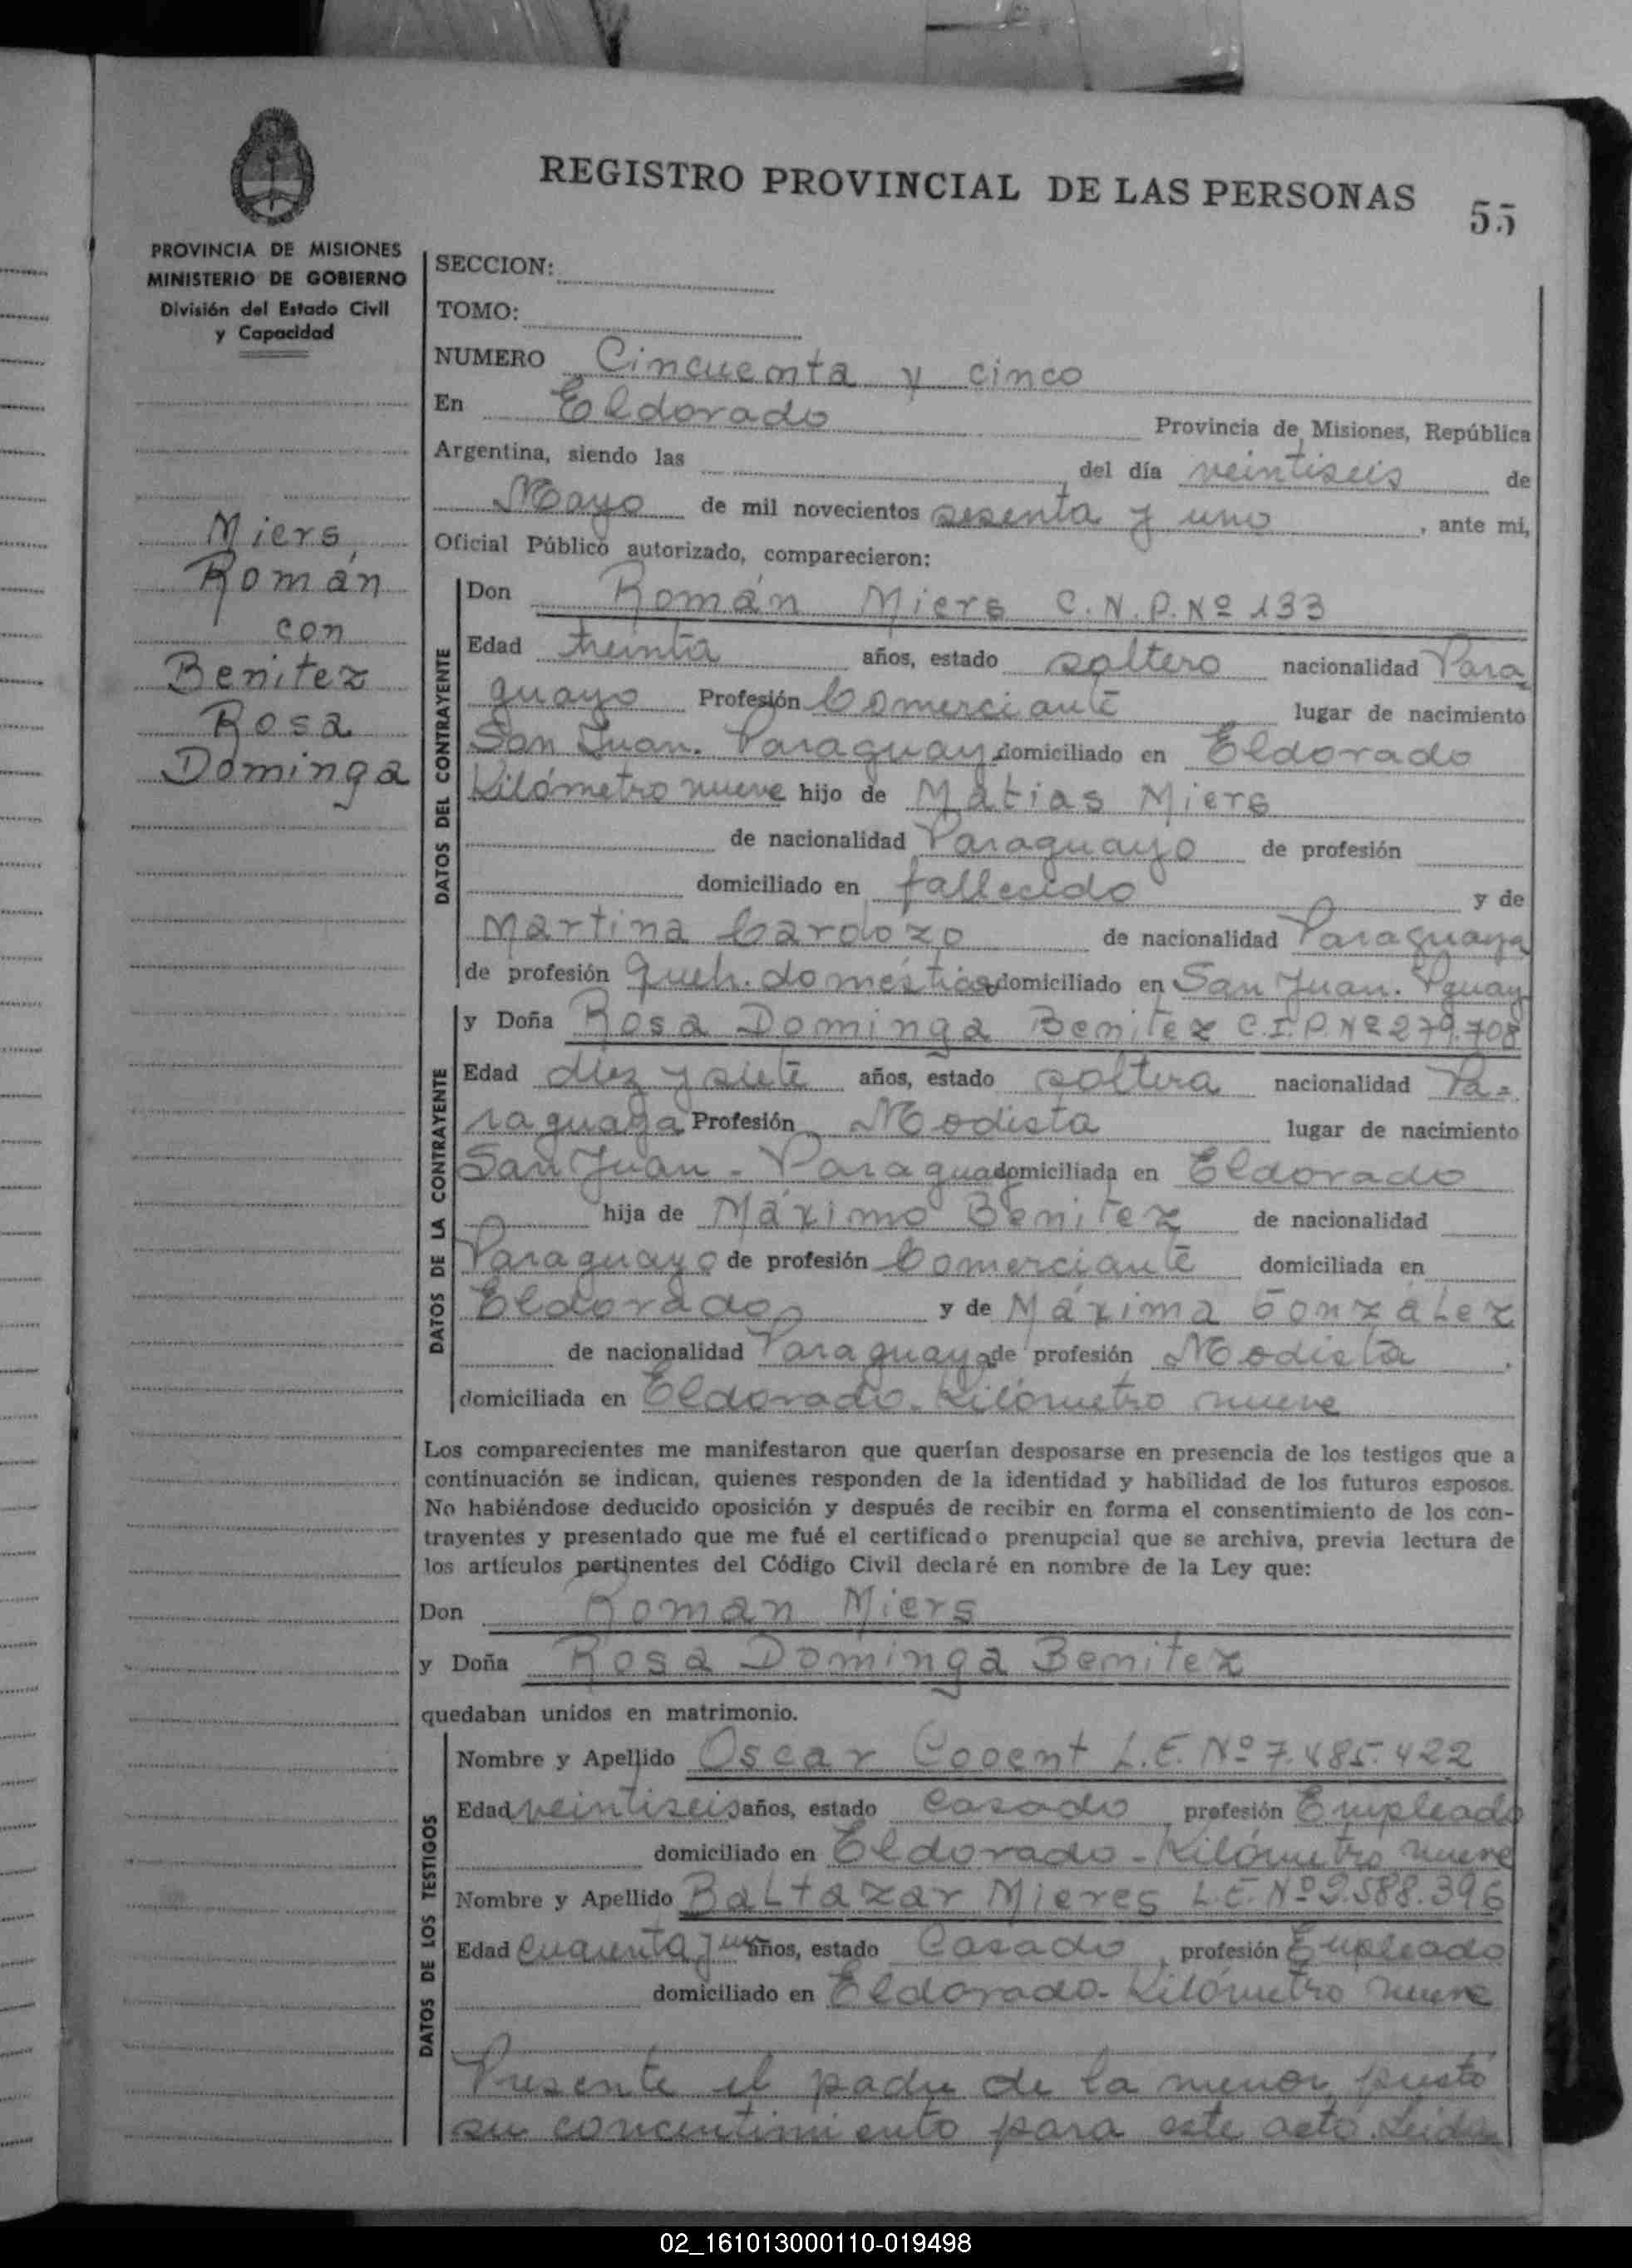 REGISTRO PROVINCIAL DE LAS PERSONAS
55
PROVINCIA DE MISIONES
MINISTERIO DE GOBIERNO
División del Estado Civil
y Capacidad
Miers,
Román
con
Benitez
Rosa
Dominga
SECCION:
TOMO:
NUMERO Cincuenta y cinco
En Eldorado Provincia de Misiones, República
Argentina, siendo las del día veintiseis de
Mayo de mil novecientos sesenta y uno, ante mi,
Oficial Público autorizado, comparecieron:
DATOS DEL CONTRAYENTE
Don Román Miers C.N.P.Nº 133
Edad treinta años, estado soltero nacionalidad Para
guayo Profesión Comerciante lugar de nacimiento
San Juan. Paraguay domiciliado en Eldorado
Kilómetro nueve hijo de Matias Miers
de nacionalidad Paraguayo de profesión
domiciliado en fallecido y de
Martina Cardozo de nacionalidad Paraguaya
de profesión Queh. domésticos domiciliado en San Juan. Pguay
DATOS DE LA CONTRAYENTE
y Doña Rosa Dominga Benitez C.I.P.Nº 279.708
Edad diez y siete años, estado soltera nacionalidad Pa=
raguaya Profesión Modista lugar de nacimiento
San Juan - Paraguay domiciliada en Eldorado
hija de Máximo Benitez de nacionalidad
Paraguayo de profesión Comerciante domiciliada en
Eldorado y de Máxima Gonzalez
de nacionalidad Paraguaya de profesión Modista
domiciliada en Eldorado. Kilómetro nueve
Los comparecientes me manifestaron que querían desposarse en presencia de los testigos que a
continuación se indican, quienes responden de la identidad y habilidad de los futuros esposos.
No habiéndose deducido oposición y después de recibir en forma el consentimiento de los con-
trayentes y presentado que me fué el certificado prenupcial que se archiva, previa lectura de
los artículos pertinentes del Código Civil declaré en nombre de la Ley que:
Don Roman Miers
y Doña Rosa Dominga Benitez
quedaban unidos en matrimonio.
DATOS DE LOS TESTIGOS
Nombre y Apellido Oscar L.E. Nº 7.485.422
Edad veintiseis años, estado casado, profesión Empleado
domiciliado en Eldorado - Kilómetro nueve
Nombre y Apellido Baltazar Mieres L.E. Nº 2.588.396
Edad cuarenta y un años, estado Casado, profesión Empleado
domiciliado en Eldorado - Kilómetro nueve
Presente el padre de la menor prestó
su concentimiento para este acto. Leida
02_161013000110-019498